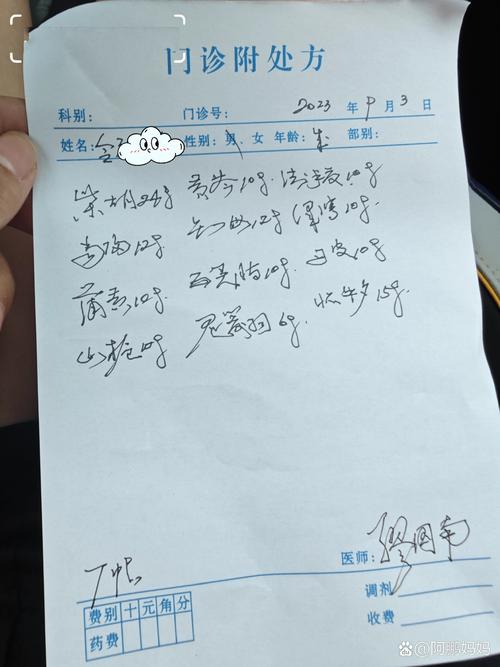 门诊附处方
科别: 门诊号: 2023 年 9 月 3 日
姓名: 性别: 男、女 年龄: 成 部别:
柴胡24g 黄芩10g 法半夏10g
12g 知母12g 10g
蒲黄10g 五灵脂10g 丹皮10g
山栀10g 鬼箭羽6g 怀牛夕15g
7帖
医师:
调剂
收费
费别 十 元 角 分
药费
@阿鹏妈妈